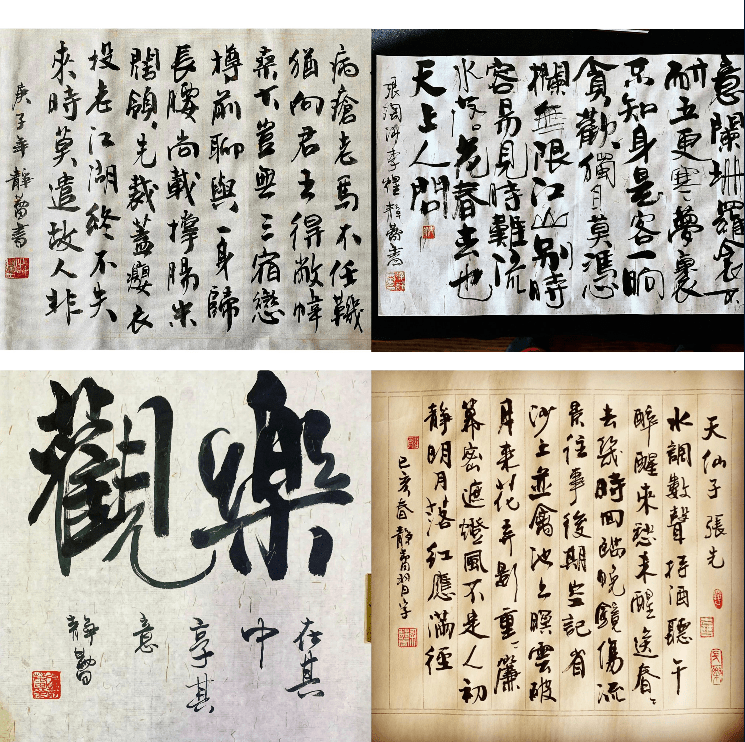 病瘡老馬不任鞿
猶向君王得敝幃
桑下豈無三宿戀
樽前聊與一身歸
長腰尚載撐腸米
闊領先裁蓋癭衣
投老江湖終不失
來時莫遣故人非
庚子年靜書
意闌珊羅衾不
耐五更寒夢裏
不知身是客一晌
貪歡獨自莫憑
欄無限江山別時
容易見時難流
水落花春去也
天上人間
浪淘沙李煜靜書
樂觀
在其
中
享其
意
靜
天仙子 張先
水調數聲持酒聽午
醉醒來愁未醒送春〻
去幾時回臨晚鏡傷流
景往事後期空記省
沙上並禽池上暝雲破
月來花弄影重〻簾
幕密遮燈風不定人初
靜明月落紅應滿徑
己亥春靜習字